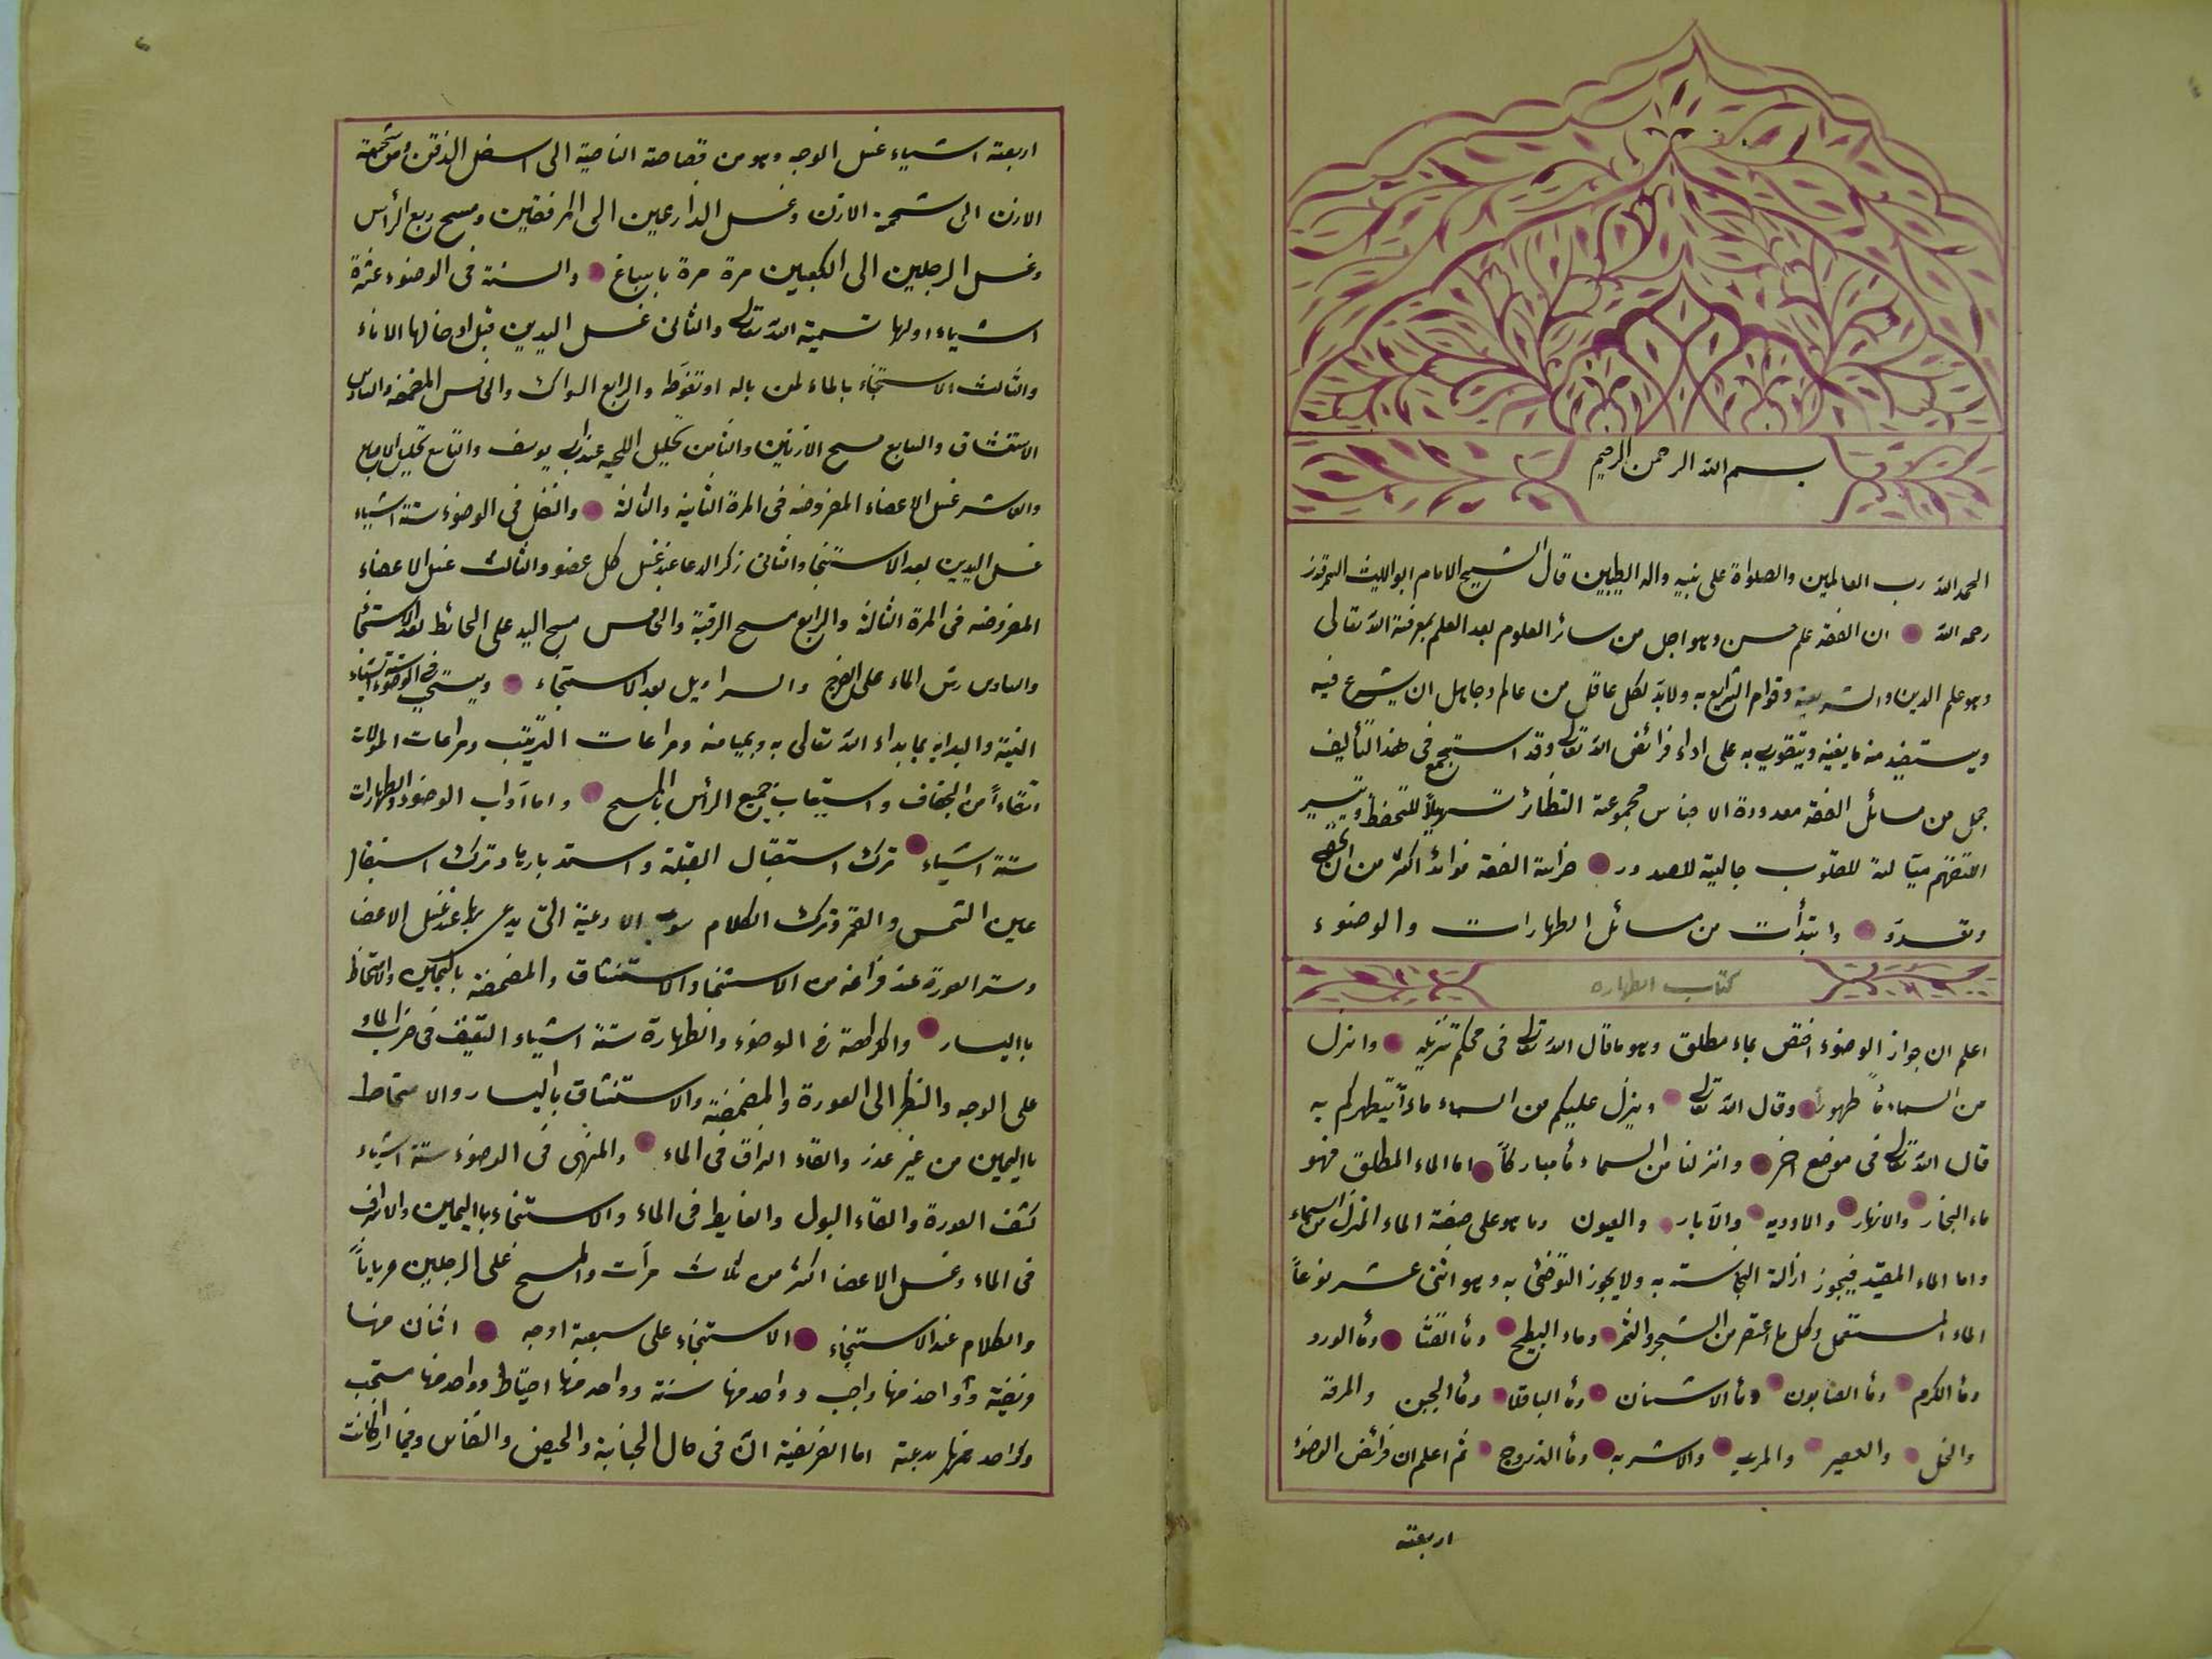 بسم الله الرحمن الرحيم
الحمد الله رب العالمين والصلواة على نبيه واله الطيبين قال الشيخ الامام ابو الليث السمرقندي
رحمه الله ان الفقه علم حسن وهو اجل من سائر العلوم بعد العلم بمعرفة الله تعالى
وهو علم الدين والشريعة وقوام الشرايع به ولابد لكل عاقل من عالم وجاهل ان يشرع فيه
ويستفيد منه ما يغنيه ويتقوى به على اداء فرائض الله تعالى وقد استجمع فى هذا التأليف
جمل من مسائل الفقه معدودة الاجناس مجموعة النظائر تسهيلاً للتحفظ وتيسير
التفهم للقلوب جالية للصدور خزانة الفقه فوائد اكثر من ان تحصى
وتعد وابتدأت من مسائل الطهارات والوضوء
كتاب الطهاره
اعلم ان جواز الوضوء اختص بماء مطلق وهو ما قال الله تعالى فى محكم تنزيله وانزل
من السماء مأً طهوراً وقال الله تعالى وينزل عليكم من السماء ماءً ليطهركم به
قال الله تعالى فى موضع اخر وانزلنا من السماء مأً مباركاً اما الماء المطلق فهو
ماء البحار والانهار والاوديه والآبار والعيون وما هو على صفة الماء المنزل من السماء
واما الماء المقيد فيجوز ازالة النجاسته به ولا يجوز التوضئ به وهو اثنى عشر نوعاً
الماء المستعمل وكل ما اعتصر من الشجر والثمر وماء البطيخ ومأ القثا ومأ الورد
ومأ الكرم ومأ الصابون ومأ الاشنان ومأ الباقلا ومأ الجبن والمرقة
والخل والعصير والمرى والاشربه ومأ الزروج ثم اعلم ان فرائض الوضوء
اربعته
اربعته اشياء غسل الوجه وهو من قصاصة الناصية الى اسفل الذقن ومن شحمة
الاذن الى شحمة الاذن وغسل الذارعين الى المرفقين ومسح ربع الرأس
وغسل الرجلين الى الكعبين مرة مرة باسباغ والسنة فى الوضوء عشرة
اشياء اولها تسمية الله تعالى والثانى غسل اليدين قبل ادخالها الاناء
والثالث الاستنجاء بالماء لمن باله او تغوّط والرابع السواك والخامس المضمضه والسادس
الاستنشاق والسابع مسح الاذنين والثامن تخليل اللحيه عند ابى يوسف والتاسع تخليل الاصابع
والعاشر غسل الاعضاء المفروضه فى المرة الثانية والثالثة والنفل فى الوضوء ستة اشياء
غسل اليدين بعد الاستنجا والثانى ذكر الدعا عند غسل كل عضو والثالث غسل الاعضاء
المفروضه فى المرة الثالثة والرابع مسح الرقبة والخامس مسح اليد على الحائط بعد الاستنجا
والسادس رش الماء على الفرج والسراويل بعد الاستنجاء ويستحب فى الوضوء ستة اشياء
النية والبدايه بما بداء الله تعالى به وبميامنه ومراعات الترتيب ومراعات الموالات
اتقاءاً من الجفاف واستيعاب جميع الرأس بالمسح واما آداب الوضوء والطهارات
ستة اشياء ترك استقبال القبلة واستدبارها وترك استقبال
عين الشمس والقمر وترك الكلام سوى الادعية التى يدعى بها عند غسل الاعضا
وستر العورة عند فراغه من الاستنجا والاستنشاق والمضمضة باليمين والامتخاط
باليسار والكراهة فى الوضوء والطهارة ستة اشياء التعنيف فى ضرب الماء
على الوجه والنظر الى العورة والمضمضة والاستنشاق باليسار والامتخاط
باليمين من غير عذر والقاء البزاق فى الماء والمنهى فى الوضوء ستة اشياء
كشف العورة والقاء البول والغايط فى الماء والاستنجاء باليمين والاسراف
فى الماء وغسل الاعضا اكثر من ثلاث مرات والمسح على الرجلين عرياناً
والكلام عند الاستنجاء الاستنجاء على سبعة اوجه اثنان منها
فريضة وواحد منها واجب وواحد منها سنة وواحد منها احتياط وواحد منها مستحب
وواحد منها بدعته اما الفريضية ان فى حال الجنابة والحيض والنفاس وفيما اذا كانت